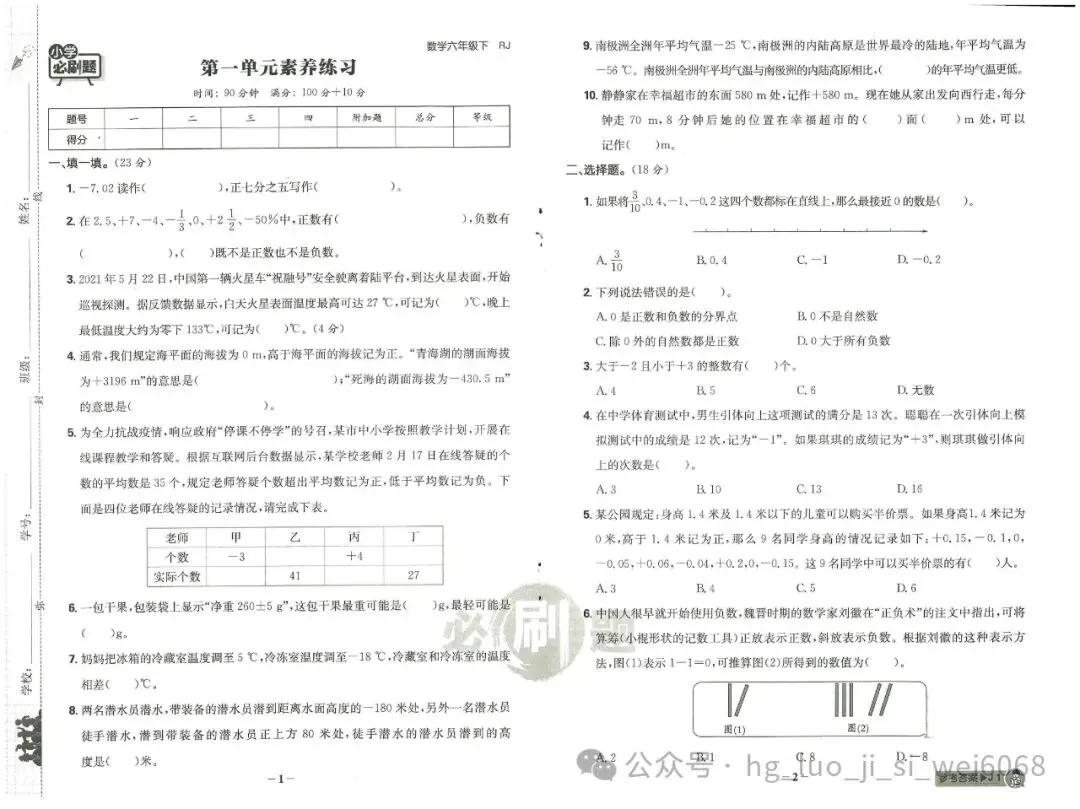 小学
必刷题
数学六年级下 RJ
第一单元素养练习
时间：90分钟 满分：100分＋10分
题号 一 二 三 四 附加题 总分 等级
得分
一、填一填。(23分)
1. －7.02读作( )，正七分之五写作( )。
2. 在2.5、＋7、－4、－1/3、0、＋2 1/2、－50%中，正数有( )，负数有
( )，( )既不是正数也不是负数。
3. 2021年5月22日，中国第一辆火星车“祝融号”安全驶离着陆平台，到达火星表面，开始
巡视探测。据反馈数据显示，白天火星表面温度最高可达27 ℃，可记为( )℃，晚上
最低温度大约为零下133℃，可记为( )℃。(4分)
4. 通常，我们规定海平面的海拔为0 m，高于海平面的海拔记为正。“青海湖的湖面海拔
为＋3196 m”的意思是( )；“死海的湖面海拔为－430.5 m”
的意思是( )。
5. 为全力抗战疫情，响应政府“停课不停学”的号召，某市中小学按照教学计划，开展在
线课程教学和答疑。根据互联网后台数据显示，某学校老师2月17日在线答疑的个
数的平均数是35个，规定老师答疑个数超出平均数记为正，低于平均数记为负。下
面是四位老师在线答疑的记录情况，请完成下表。
老师 甲 乙 丙 丁
个数 －3 ＋4
实际个数 41 27
6. 一包干果，包装袋上显示“净重260±5 g”，这包干果最重可能是( )g，最轻可能是
( )g。
7. 妈妈把冰箱的冷藏室温度调至5 ℃，冷冻室温度调至－18 ℃，冷藏室和冷冻室的温度
相差( )℃。
8. 两名潜水员潜水，带装备的潜水员潜到距离水面高度的－180米处，另外一名潜水员
徒手潜水，潜到带装备的潜水员正上方80米处，徒手潜水的潜水员潜到的高
度是( )米。
－1－
姓名：
班级：
学号：
学校：
线
封
9. 南极洲全洲年平均气温－25 ℃，南极洲的内陆高原是世界最冷的陆地，年平均气温为
－56 ℃。南极洲全洲年平均气温与南极洲的内陆高原相比，( )的年平均气温更低。
10. 静静家在幸福超市的东面580 m处，记作＋580 m。现在她从家出发向西行走，每分
钟走70 m，8分钟后她的位置在幸福超市的( )面( )m处，可以
记作( )m。
二、选择题。(18分)
1. 如果将3/10、0.4、－1、－0.2这四个数都标在直线上，那么最接近0的数是( )。
A. 3/10 B. 0.4 C. －1 D. －0.2
2. 下列说法错误的是( )。
A. 0是正数和负数的分界点 B. 0不是自然数
C. 除0外的自然数都是正数 D. 0大于所有负数
3. 大于－2且小于＋3的整数有( )个。
A. 4 B. 5 C. 6 D. 无数
4. 在中学体育测试中，男生引体向上这项测试的满分是13次。聪聪在一次引体向上模
拟测试中的成绩是12次，记为“－1”。如果琪琪的成绩记为“＋3”，则琪琪做引体向
上的次数是( )。
A. 3 B. 10 C. 13 D. 16
5. 某公园规定：身高1.4米及1.4米以下的儿童可以购买半价票。如果身高1.4米记为
0米，高于1.4米记为正，那么9名同学身高的情况记录如下：＋0.15，－0.1，0，
－0.05，＋0.06，－0.04，＋0.2，0，－0.15。这9名同学中可以买半价票的有( )人。
A. 3 B. 4 C. 5 D. 6
6. 中国人很早就开始使用负数，魏晋时期的数学家刘徽在“正负术”的注文中指出，可将
算筹(小棍形状的记数工具)正放表示正数，斜放表示负数。根据刘徽的这种表示方
法，图(1)表示1－1＝0，可推算图(2)所得到的数值为( )。
图(1) 图(2)
A. 2 B. 1 C. 8 D. －8
－2－
参考答案▶J1
必刷题
公众号·hg_luo_ji_si_wei6068